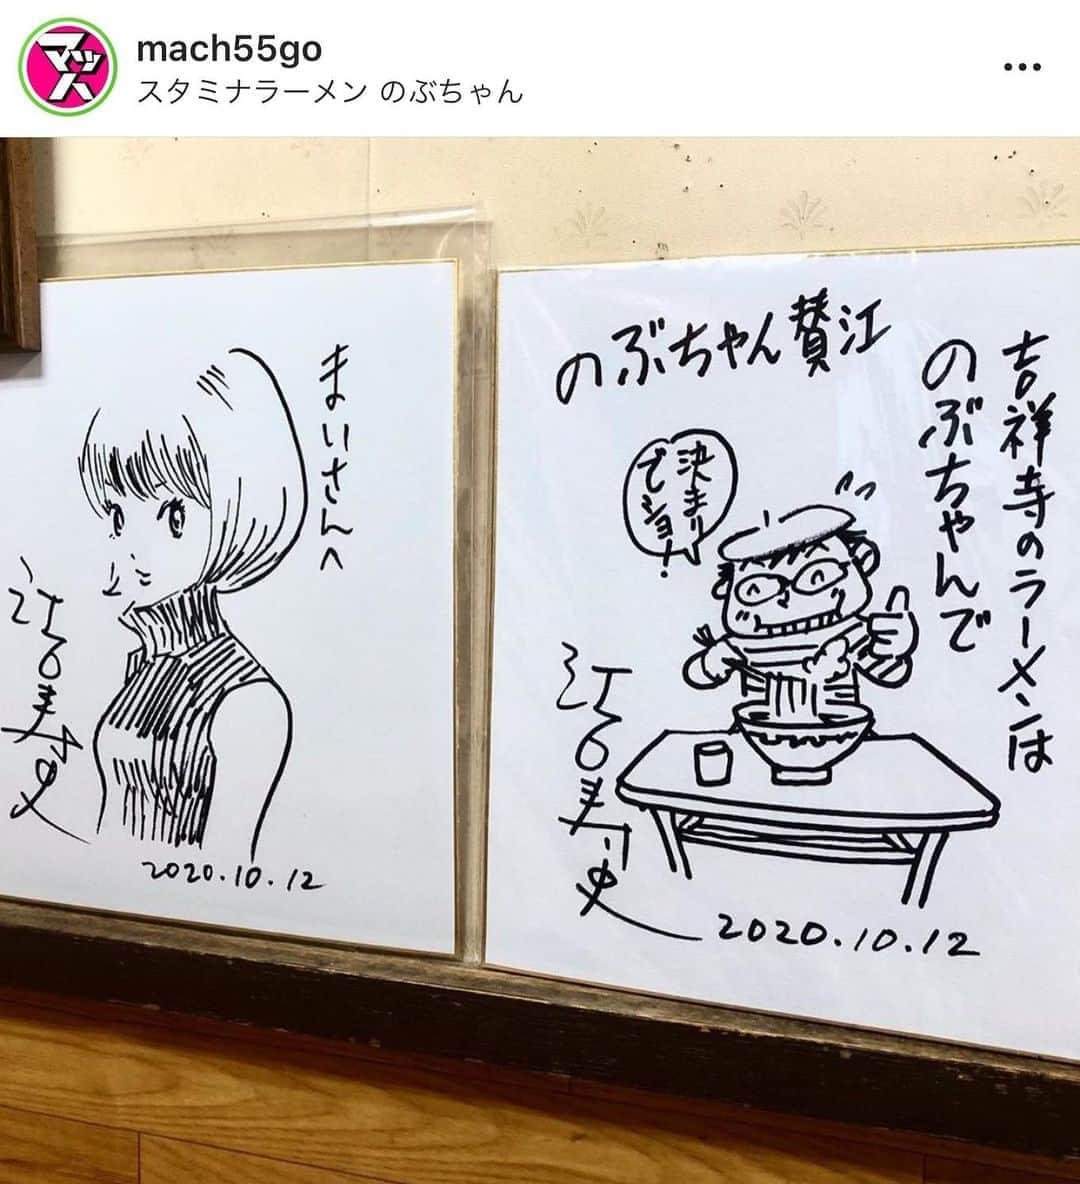 mach55go
スタミナラーメン のぶちゃん
マッハ
まいさんへ
江口寿史
2020.10.12
のぶちゃん賛江
吉祥寺のラーメンは
のぶちゃんで
決まり
でショ!
江口寿史
2020.10.12